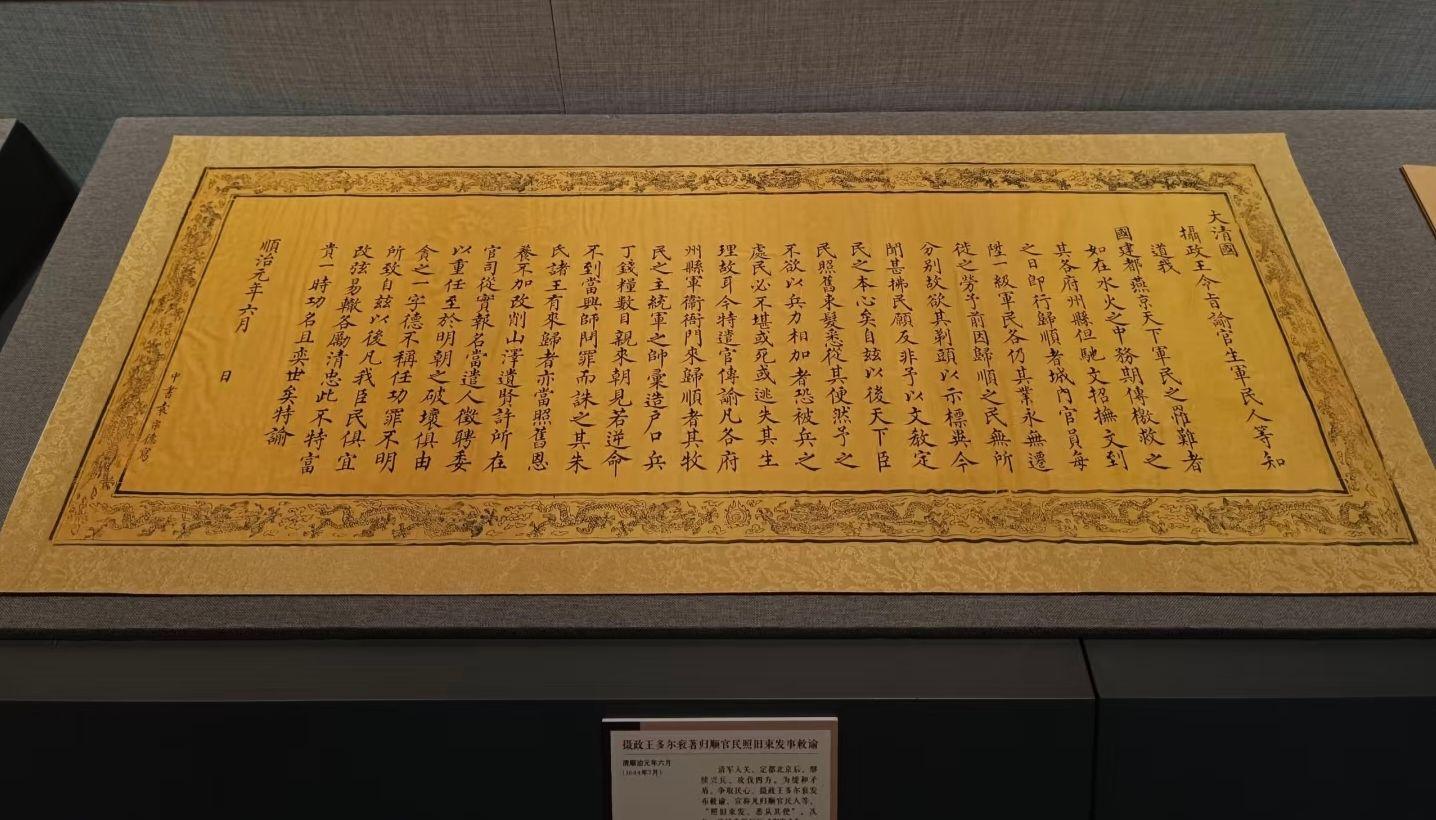 大清國
攝政王令旨諭官生軍民人等知
道我
國建都燕京天下軍民之罹難者
如在水火之中務期傳檄救之
其各府州縣但馳文招撫文到
之日即行歸順者城門官員每
陞一級軍民各仍其業永無遷
徙之勞予前因歸順之民無所
分别故欲其剃頭以示標異今
聞甚拂民願反非予以文教定
民之本心矣自兹以後天下臣
民照舊束髮悉從其便然予之
不欲以兵力相加者恐被兵之
處民必不堪或死或逃失其生
理故耳今特遣官傳諭凡各府
州縣軍衞衙門來歸順者其牧
民之主統軍之帥彙造户口兵
丁錢糧數目親來朝見若逆命
不到當興師問罪而誅之其朱
氏諸王有來歸者亦當照舊恩
養不加改削山澤遺賢許所在
官司從實報名當遣人徵聘委
以重任至於明朝之破壞俱由
貪之一字德不稱任功罪不明
所致自兹以後凡我臣民俱宜
改弦易轍各勵清忠此不特富
貴一時功名且奕世矣特諭
順治元年六月 日
中書袁宗德寫
摄政王多尔衮著归顺官民照旧束发事敕谕
清顺治元年六月
(1644年7月)
清军入关、定都北京后，继
续兴兵，攻伐四方。为缓和矛
盾，争取民心，摄政王多尔衮发
布敕谕，宣称凡归顺官民人等，
“照旧束发，悉从其便”。